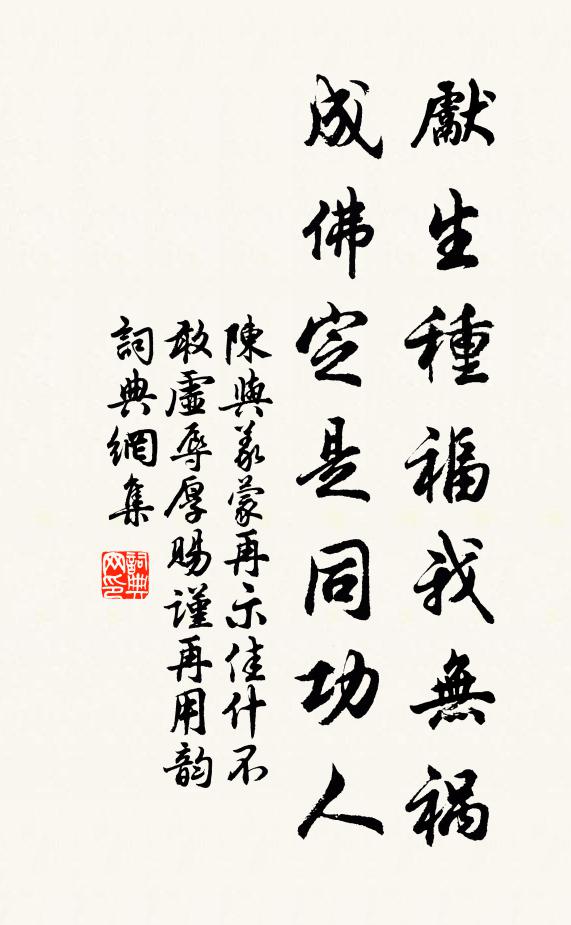 獻生種福我無禍
成佛定是同功人
陳與義蒙再示佳什不
敢虛辱厚賜謹再用韵
詞典網集
詞典网印